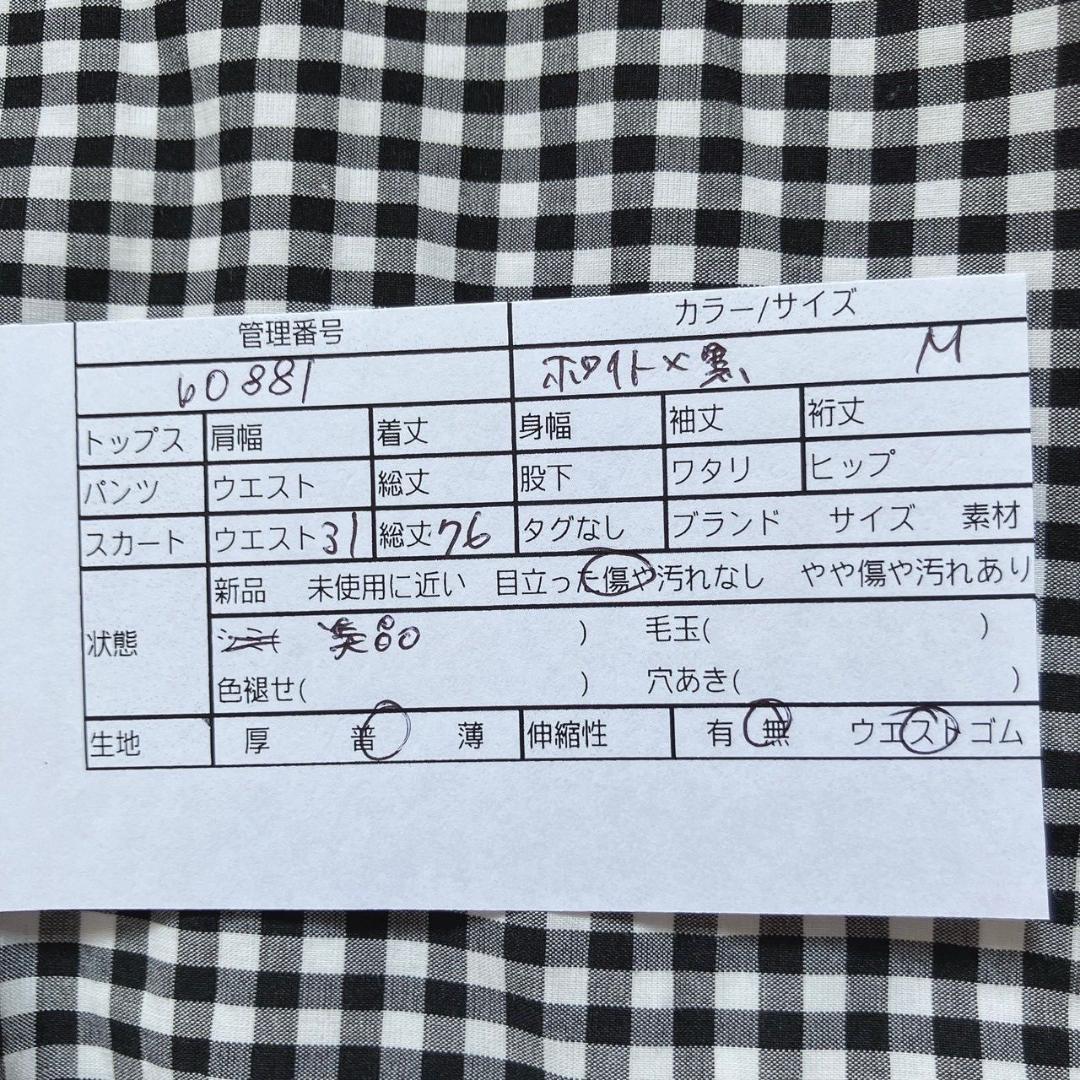 管理番号 カラー/サイズ
60881 ホワイト×黒 M
トップス 肩幅 着丈 身幅 袖丈 裄丈
パンツ ウエスト 総丈 股下 ワタリ ヒップ
スカート ウエスト31 総丈76 タグなし ブランド サイズ 素材
新品 未使用に近い 目立った傷や汚れなし やや傷や汚れあり
状態 美品 ) 毛玉( )
色褪せ( ) 穴あき( )
生地 厚 普 薄 伸縮性 有 無 ウエストゴム